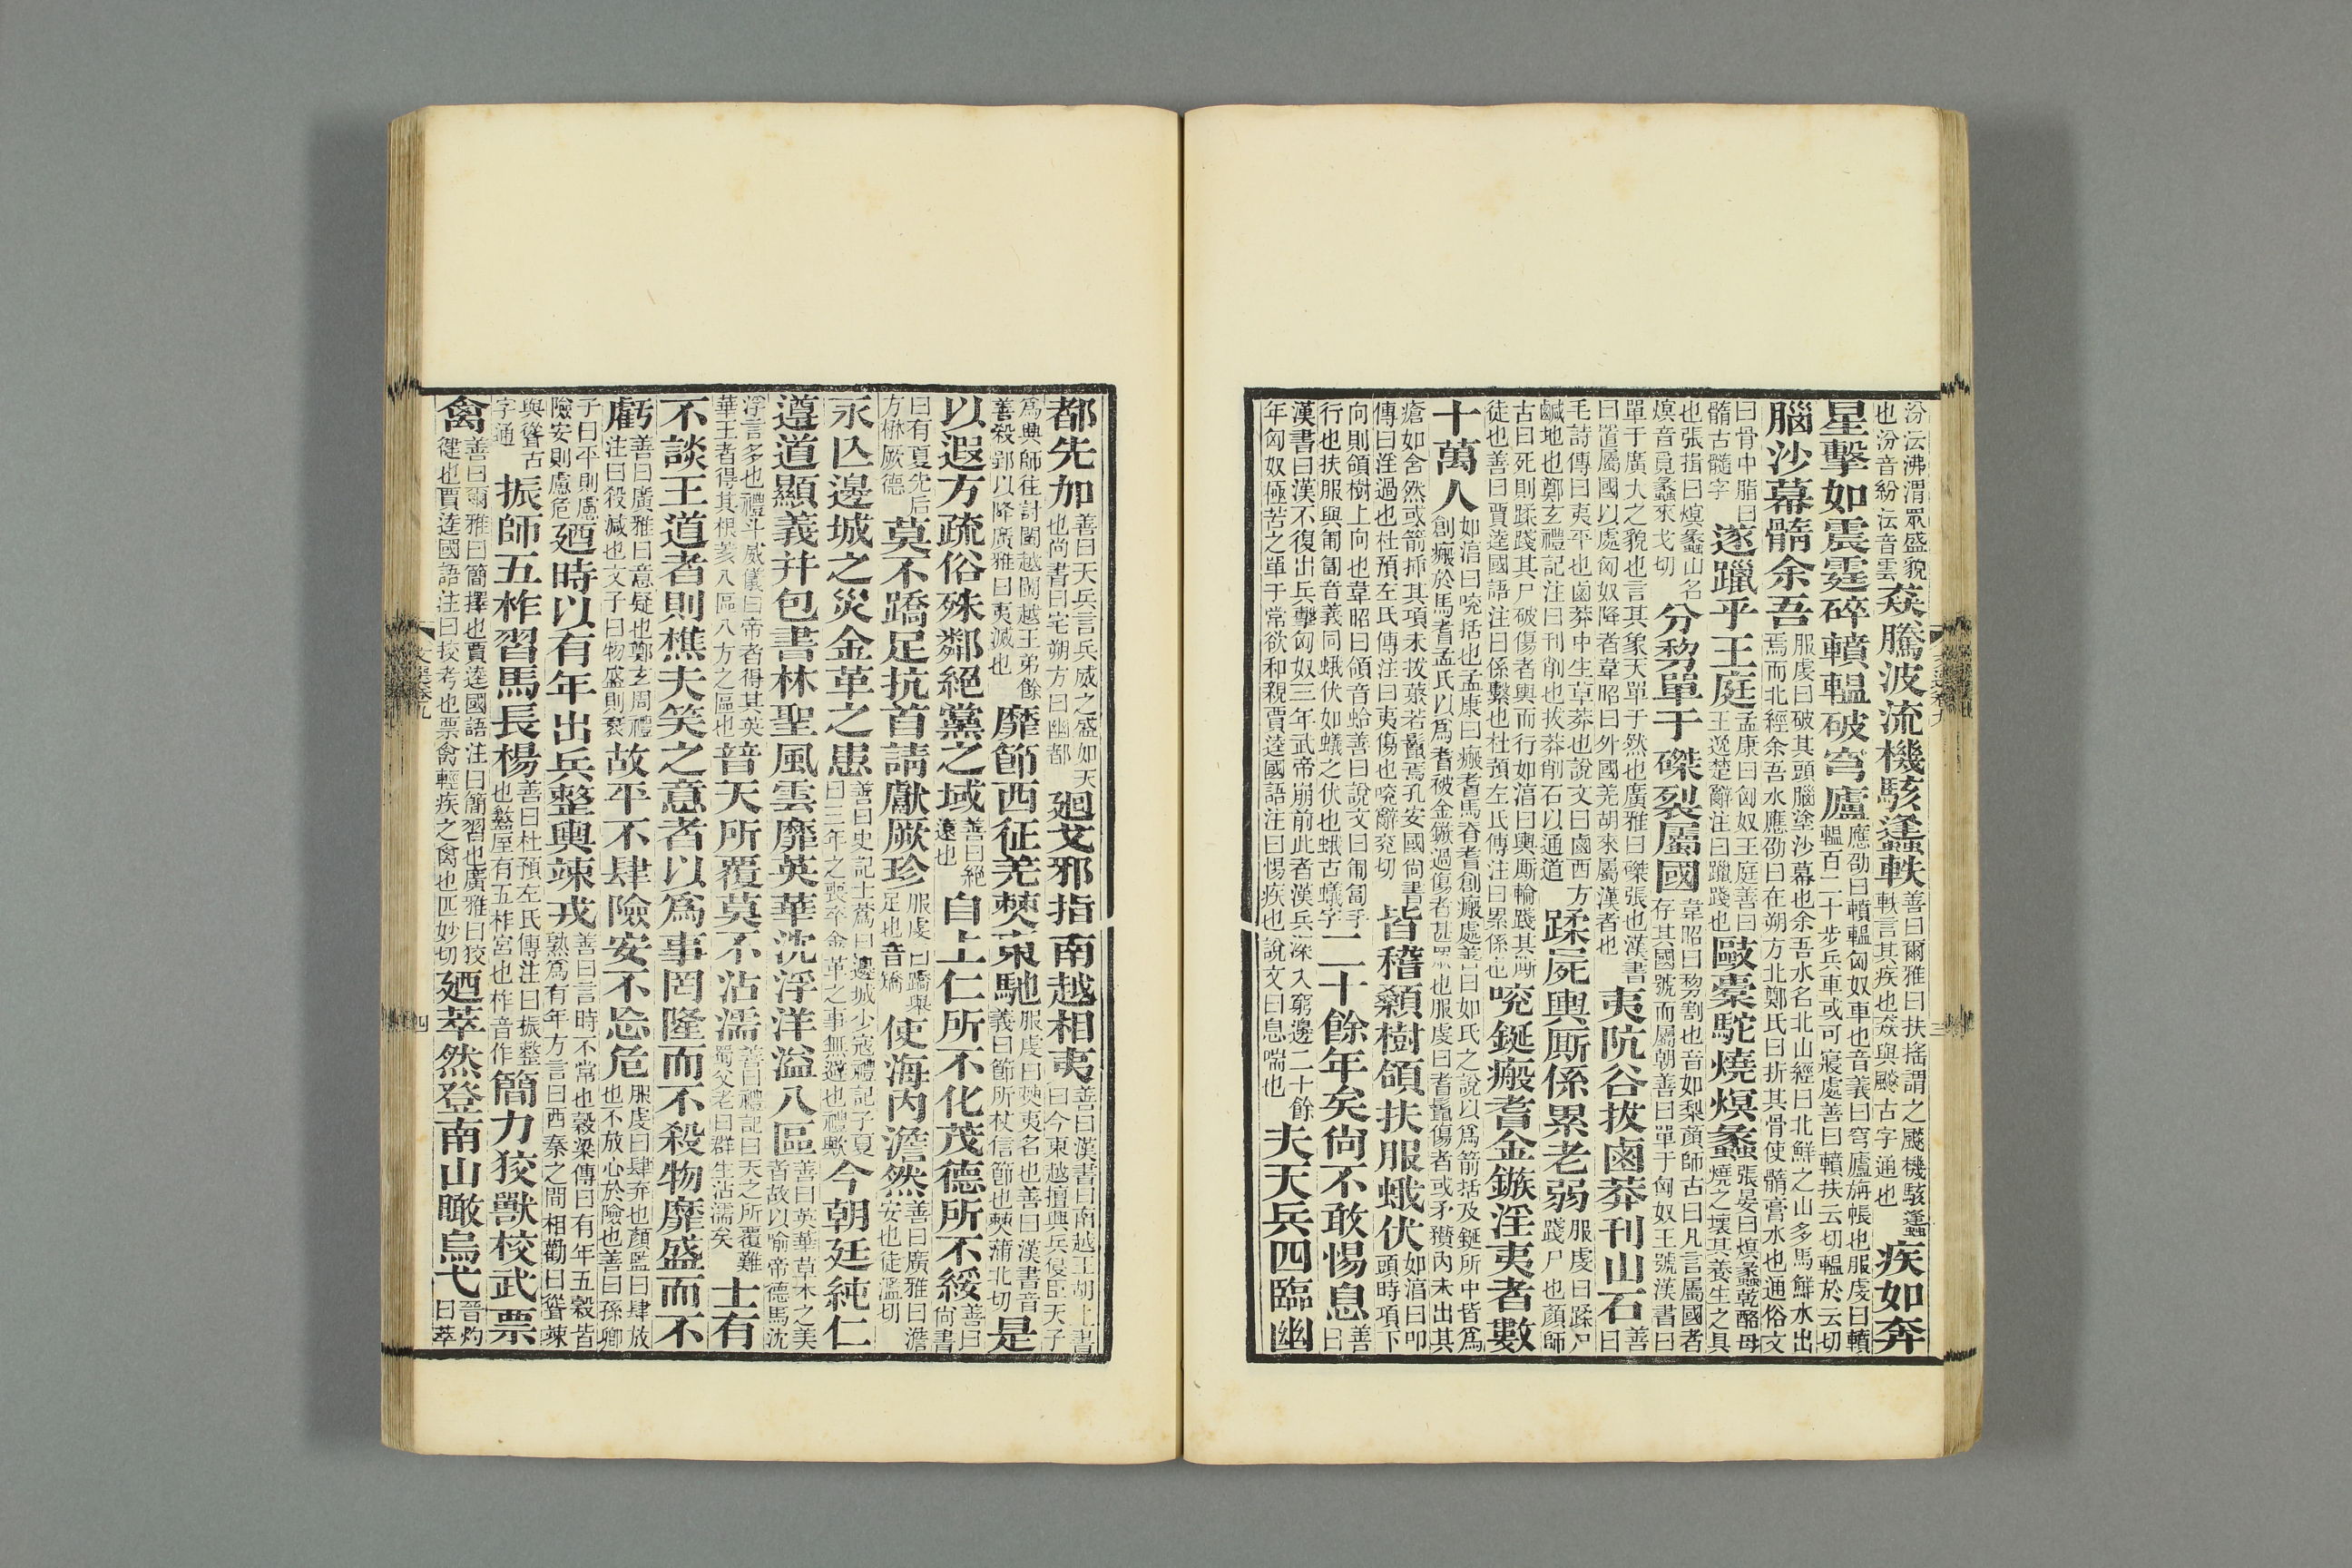 汾沄沸渭眾盛貌也汾音紛沄音雲猋騰波流機駭蠭軼善曰爾雅曰扶搖謂之飇機駭蠭軼言其疾也猋與飇古字通也疾如奔
星擊如震霆碎轒轀破穹廬應劭曰轒轀匈奴車也音義曰穹廬旃帳也服虔曰轒轀百二十步兵車或可寢處善曰轒扶云切轀於云切
腦沙幕髓余吾服虔曰破其頭腦塗沙幕也余吾水名北山經曰北鮮之山多馬鮮水出焉而北經余吾水應劭曰在朔方北鄭氏曰折其骨使髓膏水也通俗文
曰骨中脂曰髓古髓字遂躐乎王庭孟康曰匈奴王庭善曰王逸楚辭注曰躐踐也敺橐駝燒熐蠡張晏曰熐蠡乾酪母燒之壞其養生之具
也張揖曰熐蠡山名熐音覓蠡來戈切分㓯單于磔裂屬國韋昭曰㓯割也音如梨顏師古曰凡言屬國者存其國號而屬朝善曰單于匈奴王號漢書曰
單于廣大之貌也言其象天單于然也廣雅曰磔張也漢書曰置屬國以處匈奴降者韋昭曰外國羌胡來屬漢者也夷阬谷拔鹵莽刊山石善曰
毛詩傳曰夷平也鹵莽中生草莽也說文曰鹵西方鹹地也鄭玄禮記注曰刊削也拔莽削石以通道蹂屍輿廝係累老弱服虔曰蹂尸踐尸也顏師
古曰死則蹂踐其尸破傷者輿而行如淳曰輿廝輪踐其廝徒也善曰賈逵國語注曰係繫也杜預左氏傳注曰累係也吮鋋瘢耆金鏃淫夷者數
十萬人如淳曰吮括也孟康曰瘢耆馬脊耆創瘢處善曰如氏之說以爲箭括及鋋所中皆爲創瘢於馬耆孟氏以爲耆被金鏃過傷者甚眾也服虔曰耆鬣傷者或矛䂎內未出其
瘡如含然或箭揷其項未拔蘂若鬣焉孔安國尚書傳曰淫過也杜預左氏傳注曰夷傷也吮辭兖切皆稽顙樹頷扶服蛾伏如淳曰叩頭時項下
向則頷樹上向也韋昭曰頷音蛤善曰說文曰匍匐手行也扶服與匍匐音義同蛾伏如蟻之伏也蛾古蟻字二十餘年矣尚不敢惕息善曰
漢書曰漢不復出兵擊匈奴三年武帝崩前此者漢兵深入窮邊二十餘年匈奴極苦之單于常欲和親賈逵國語注曰惕疾也說文曰息喘也夫天兵四臨幽
都先加善曰天兵言兵威之盛如天也尚書曰宅朔方曰幽都廻戈邪指南越相夷善曰漢書曰南越王胡上書曰今東越擅興兵侵臣天子
爲興師往討閩越閩越王弟餘善殺郢以降廣雅曰夷滅也靡節西征羌僰東馳服虔曰僰夷名也善曰漢書音義曰節所杖信節也僰蒲北切是
以遐方疏俗殊鄰絕黨之域善曰絕遠也自上仁所不化茂德所不綏善曰尚書
曰有夏先后方楙厥德莫不蹻足抗首請獻厥珍服虔曰蹻舉足也音矯使海內澹然善曰廣雅曰澹安也徒濫切
永亾邊城之災金革之患善曰史記士蔿曰邊城少寇禮記子夏曰三年之喪卒金革之事無避也禮歟今朝廷純仁
遵道顯義并包書林聖風雲靡英華沈浮洋溢八區善曰英華草木之美者故以喻帝德焉沈
浮言多也禮斗威儀曰帝者得其英華王者得其根荄八區八方之區也普天所覆莫不沾濡善曰禮記曰天之所覆難蜀父老曰群生沾濡矣士有
不談王道者則樵夫笑之意者以爲事罔隆而不殺物靡盛而不
虧善曰廣雅曰意疑也鄭玄周禮注曰殺減也文子曰物盛則衰故平不肆險安不忘危服虔曰肆弃也顏監曰肆放也不放心於險也善曰孫卿
子曰平則慮險安則慮危廼時以有年出兵整輿竦戎善曰言時不常也穀梁傳曰有年五穀皆熟爲有年方言曰西秦之間相勸曰聳竦
與聳古字通振師五柞習馬長楊善曰杜預左氏傳注曰振整也盩厔有五柞宮也柞音作簡力狡獸校武票
禽善曰爾雅曰簡擇也賈逵國語注曰簡習也廣雅曰狡健也賈逵國語注曰校考也票禽輕疾之禽也匹妙切廼萃然登南山瞰烏弋晉灼曰萃